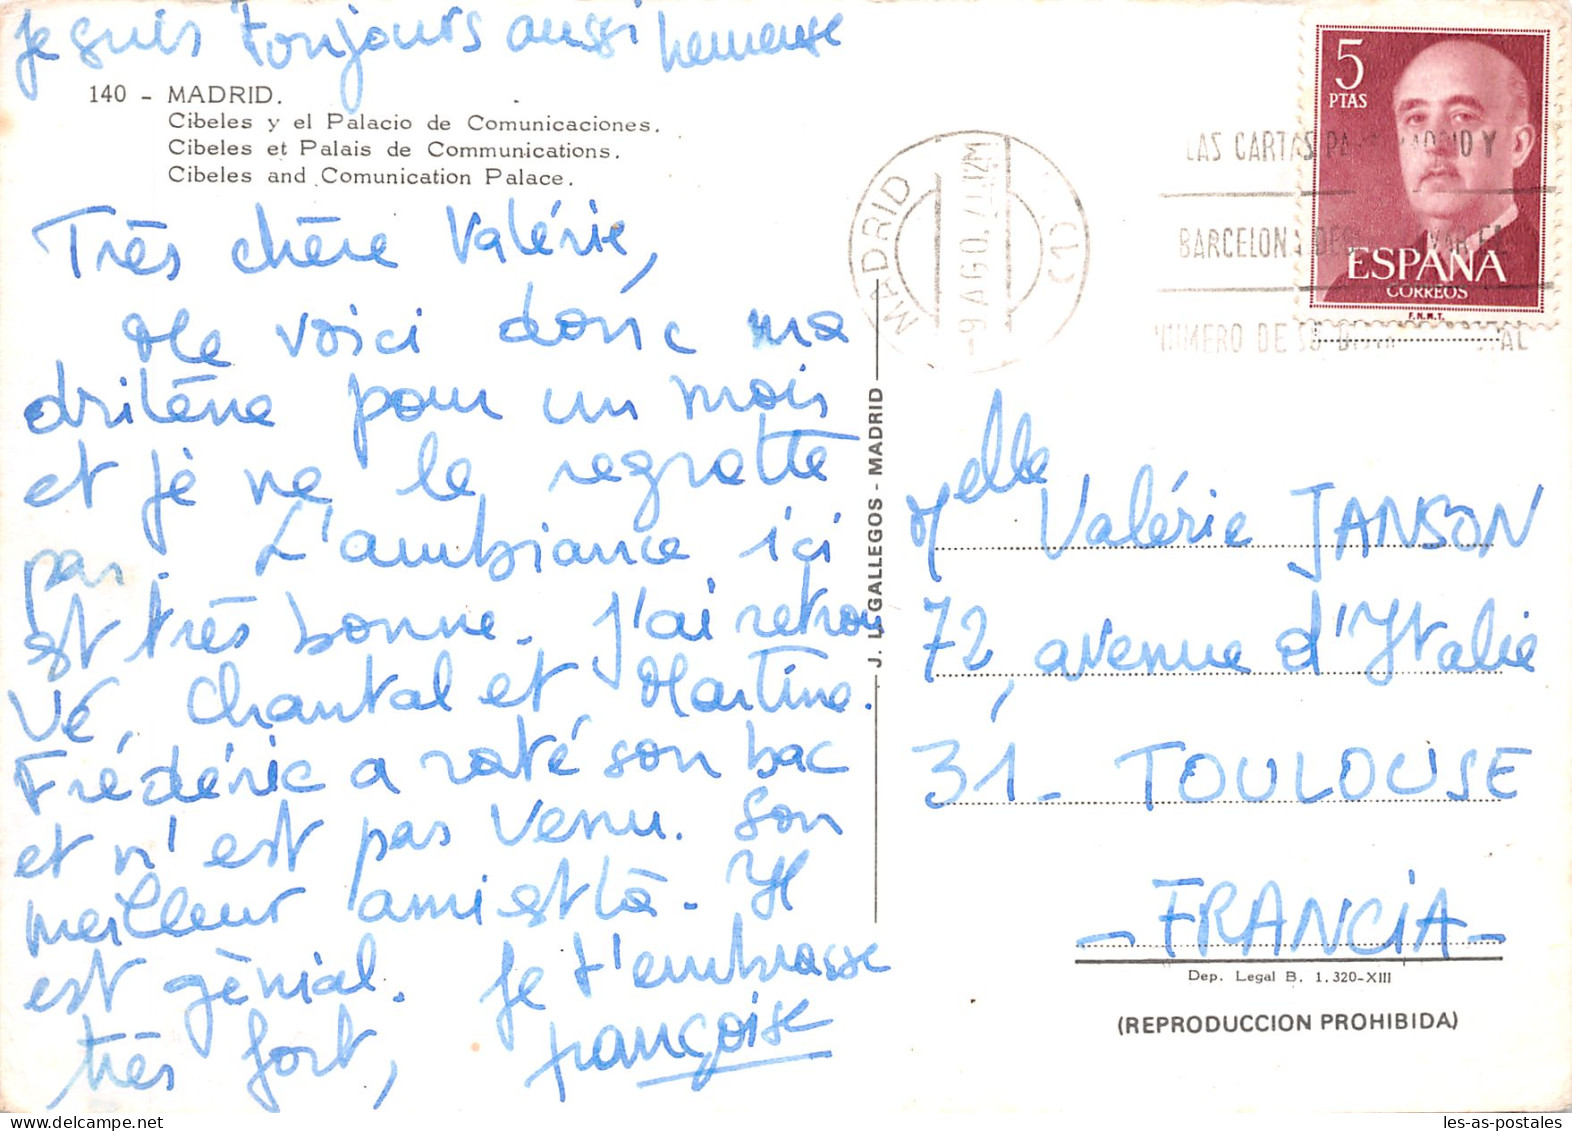 Je suis toujours aussi heureuse
140 - MADRID.
Cibeles y el Palacio de Comunicaciones.
Cibeles et Palais de Communications.
Cibeles and Comunication Palace.
Très chère Valérie,
Me voici donc ma
drilène pour un mois
et je ne le regrette
pas. L'ambiance ici
est très bonne. J'ai retrou
vé, Chantal et Martine.
Frédéric a raté son bac
et n'est pas venu. Son
meilleur ami est là. Il
est génial. Je t'embrasse
très fort, Françoise
J. L. GALLEGOS - MADRID
MADRID
-9 AGO. 12M
5
PTAS
ESPAÑA
CORREOS
F.N.M.T.
LAS CARTAS PARA MADRID Y
BARCELONA
NUMERO DE SU
Melle Valérie JANSON
72, avenue d'Italie
31- TOULOUSE
- FRANCIA -
Dep. Legal B. 1.320-XIII
(REPRODUCCION PROHIBIDA)
les-as-postales